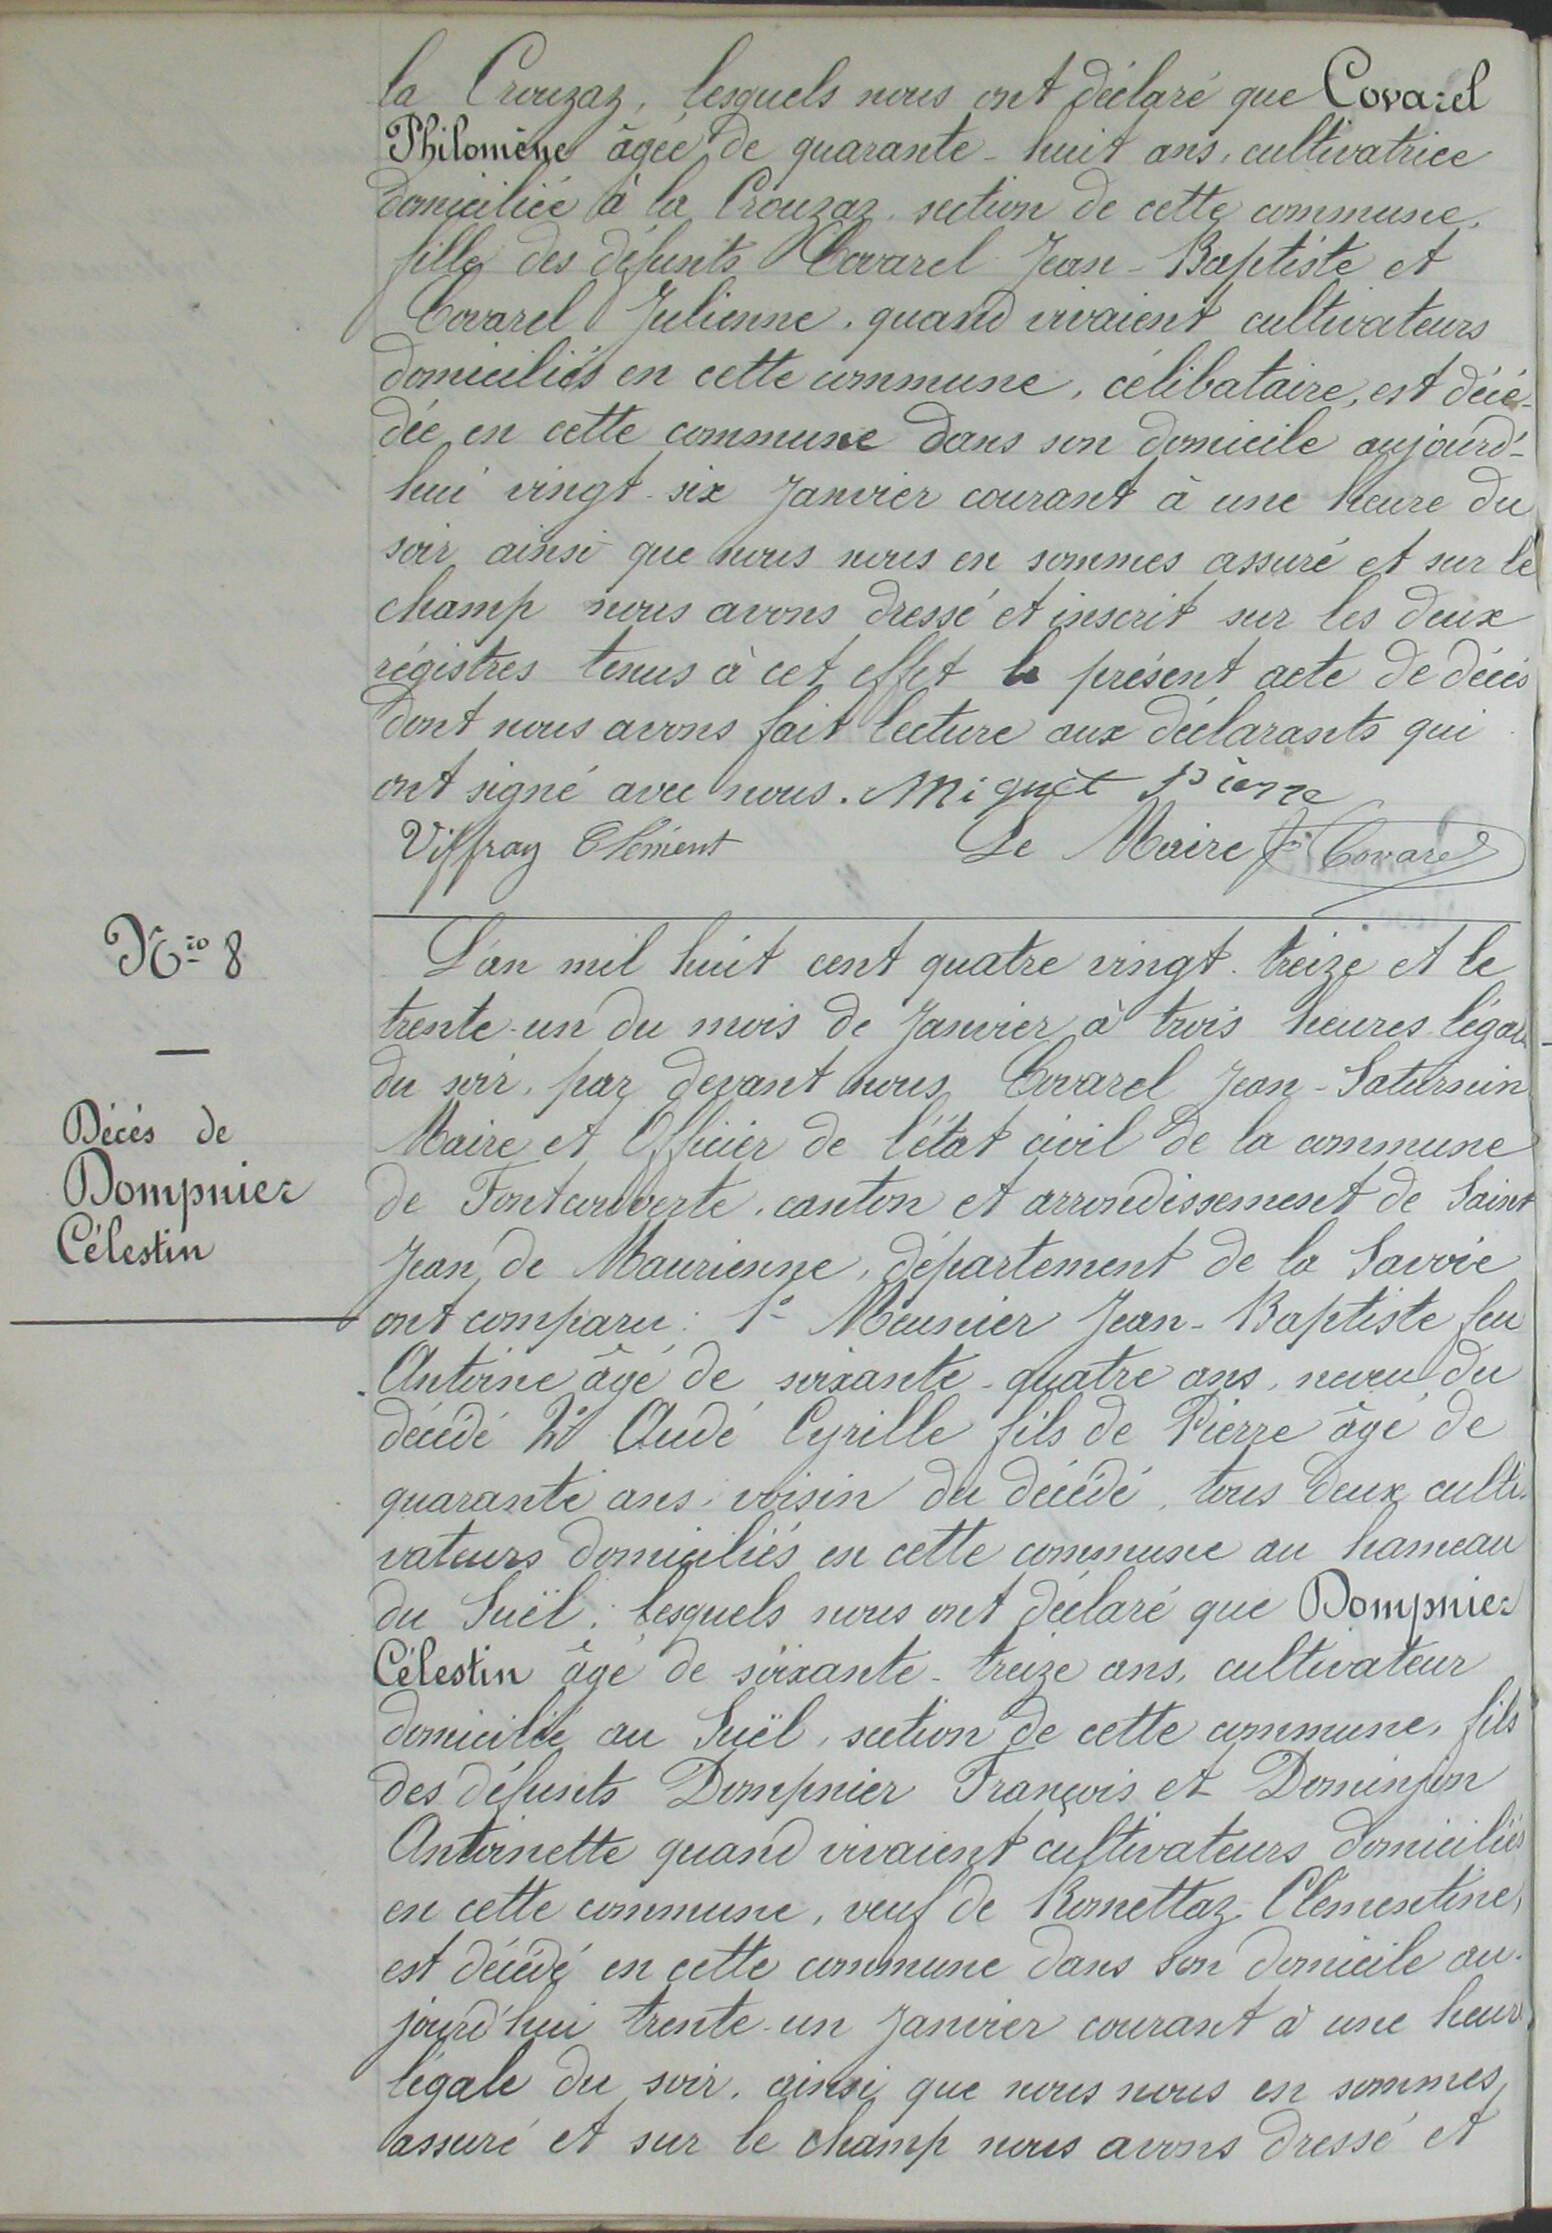 la Crouzaz, lesquels nous ont déclaré que Covarel
Philomène âgée de quarante-huit ans, cultivatrice
domiciliée à la Crouzaz, section de cette commune,
fille des défunts Covarel Jean-Baptiste et
Covarel Julienne, quand vivaient cultivateurs
domiciliés en cette commune, célibataire, est décé-
dée en cette commune dans son domicile aujourd'-
hui vingt-six Janvier courant à une heure du
soir ainsi que nous nous en sommes assuré et sur le
champ nous avons dressé et inscrit sur les deux
régistres tenus à cet effet le présent acte de décès
dont nous avons fait lecture aux déclarants qui
ont signé avec nous. Miquet Pierre
Viffray Clément Le Maire Jn Covarel
Nro 8
Décés de
Dompnier
Célestin
L'an mil huit cent quatre vingt-treize et le
trente-un du mois de Janvier à trois heures légales
du soir, par devant nous Covarel Jean-Saturnin
Maire et Officier de l'état civil de la commune
de Fontcouverte, canton et arrondissement de Saint
Jean de Maurienne, département de la Savoie
ont comparu: 1º Meunier Jean-Baptiste feu
Antoine âgé de soixante-quatre ans, neveu du
décédé 2º Audé Cyrille fils de Pierre âgé de
quarante ans, voisin du décédé, tous deux culti-
vateurs domiciliés en cette commune au hameau
du Suël, lesquels nous ont déclaré que Dompnier
Célestin âgé de soixante-treize ans, cultivateur
domicilié au Suël, section de cette commune, fils
des défunts Dompnier François et Dominjon
Antoinette quand vivaient cultivateurs domiciliés
en cette commune, veuf de Romettaz Clémentine,
est décédé en cette commune dans son domicile au-
jourd'hui trente-un Janvier courant à une heure
légale du soir, ainsi que nous nous en sommes
assuré et sur le champ nous avons dressé et